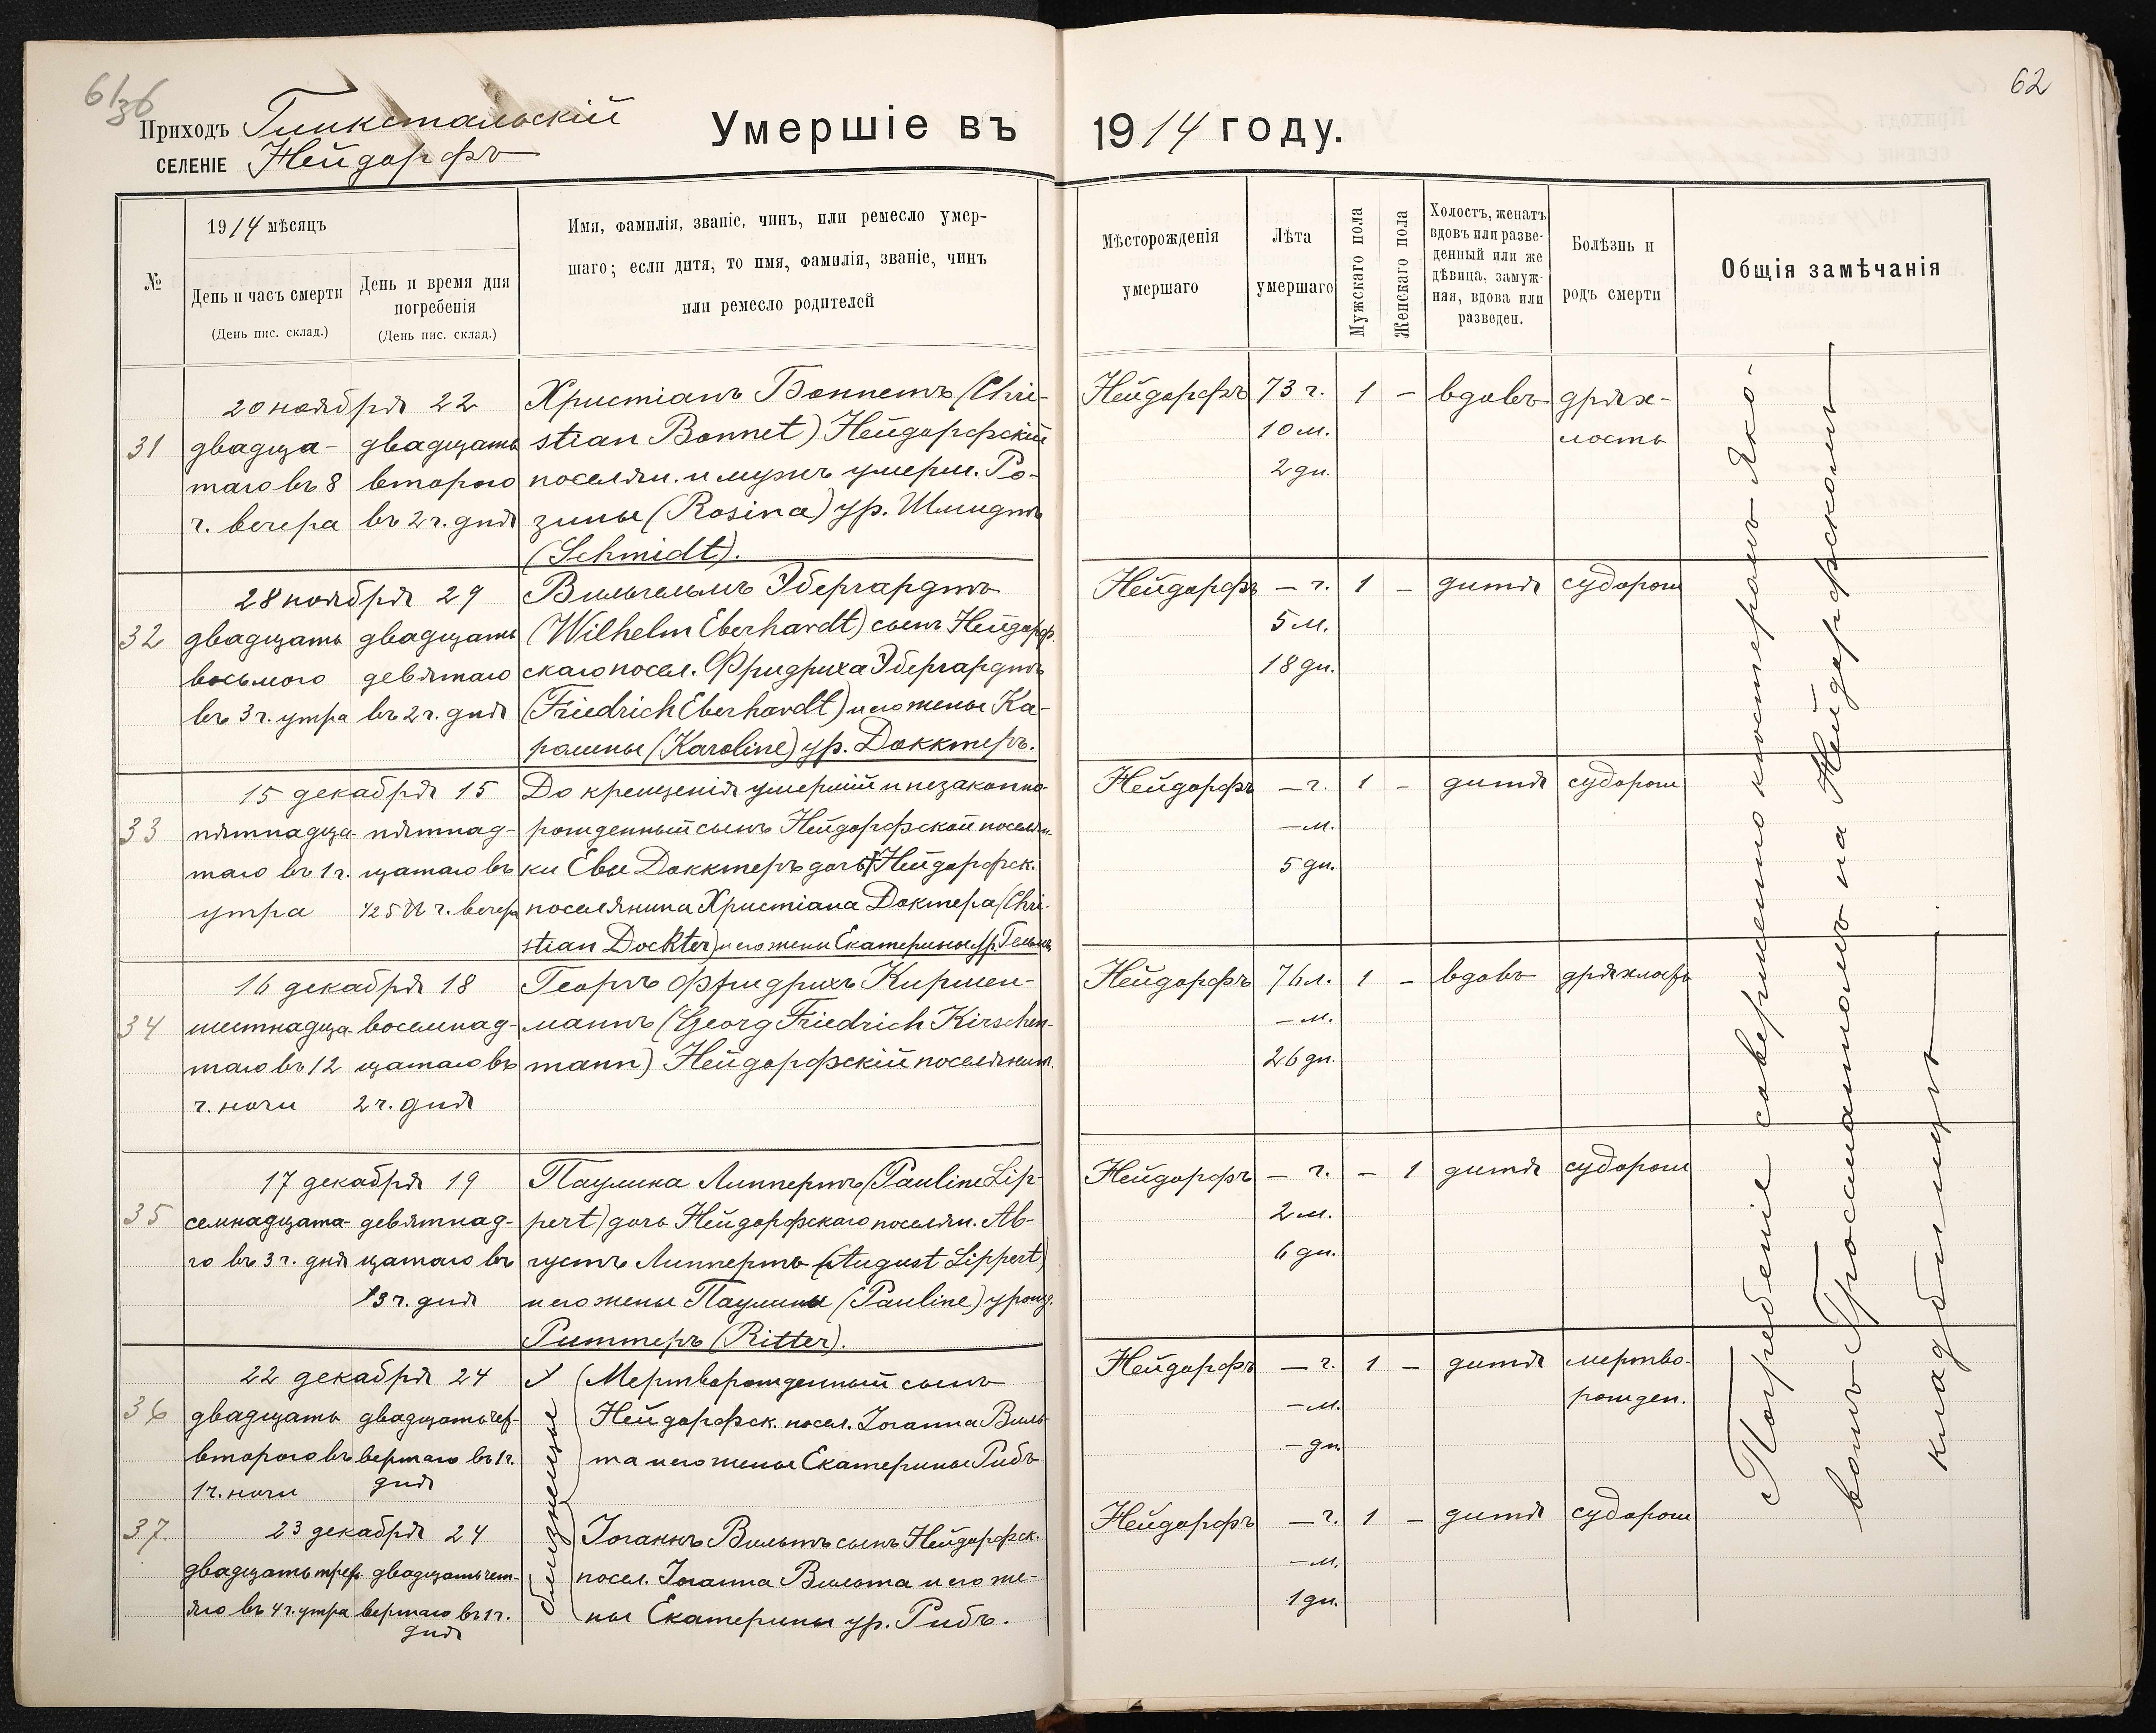 6/36
62
Приходъ Глюкстальскій
СЕЛЕНІЕ Нейдорфъ
Умершіе въ 1914 году.
№
1914 мѣсяцъ
День и часъ смерти
(День пис. склад.)
День и время дня
погребенія
(День пис. склад.)
Имя, фамилія, званіе, чинъ, или ремесло умер-
шаго; если дитя, то имя, фамилія, званіе, чинъ
или ремесло родителей
Мѣсторожденія
умершаго
Лѣта
умершаго
Мужскаго пола
Женскаго пола
Холостъ, женатъ
вдовъ или разве-
денный или же
дѣвица, замуж-
няя, вдова или
разведен.
Болѣзнь и
родъ смерти
Общія замѣчанія
31
20 ноября 22
двадца-
таго въ 8
ч. вечера
двадцать
второго
въ 2 ч. дня
Христіанъ Боннетъ (Chri-
stian Bonnet) Нейдорфскій
поселян. и мужъ умерш. Ро-
зины (Rosina) ур. Шмидтъ
(Schmidt).
Нейдорфъ
73 г.
10 м.
2 дн.
1 –
вдовъ
дрях-
лость
32
28 ноября 29
двадцать
восьмого
въ 3 ч. утра
двадцать
девятаго
въ 2 ч. дня
Вильгельмъ Эбергардтъ
(Wilhelm Eberhardt) сынъ Нейдорф-
скаго посел. Фридриха Эбергардтъ
(Friedrich Eberhardt) и его жены Ка-
ролины (Karoline) ур. Доктеръ.
Нейдорфъ
– г.
5 м.
18 дн.
1 –
дитя
судороги
33
15 декабря 15
пятнадца-
таго въ 1 ч.
утра
пятнад-
цатаго въ
ч. вечера
До крещенія умершій и незаконно-
рожденный сынъ Нейдорфской поселян-
ки Евы Доктеръ дочь Нейдорфск.
поселянина Христіана Доктера (Chri-
stian Dockter) и его жены Екатерины ур.
Нейдорфъ
– г.
– м.
5 дн.
1 –
дитя
судороги
34
16 декабря 18
шестнадца-
таго въ 12
ч. ночи
восемнад-
цатаго въ
2 ч. дня
Георгъ Фридрихъ Киршен-
маннъ (Georg Friedrich Kirschen-
mann) Нейдорфскій поселянин.
Нейдорфъ
76 л.
– м.
26 дн.
1 –
вдовъ
дряхлость
35
17 декабря 19
семнадцата-
го въ 3 ч. дня
девятнад-
цатаго въ
3 ч. дня
Паулина Липпертъ (Pauline Lip-
pert) дочь Нейдорфскаго поселян. Ав-
густъ Липпертъ (August Lippert)
и его жены Паулины (Pauline) урожд.
Риттеръ (Ritter).
Нейдорфъ
– г.
2 м.
6 дн.
– 1
дитя
судороги
36
22 декабря 24
двадцать
второго въ
1 ч. ночи
двадцать чет-
вертаго въ 1 ч.
дня
близнецы
Мертворожденный сынъ
Нейдорфск. посел. Іоганна Виль-
та и его жены Екатерины Рибъ
Нейдорфъ
– г.
– м.
– дн.
1 –
дитя
мертво-
рожден.
37.
23 декабря 24
двадцать треть-
яго въ 4 ч. утра
двадцать чет-
вертаго въ 1 ч.
дня
Іоганнъ Вильтъ сынъ Нейдорфск.
посел. Іоганна Вильта и его же-
ны Екатерины ур. Рибъ.
Нейдорфъ
– г.
– м.
1 дн.
1 –
дитя
судороги
Погребеніе совершено кистеромъ Яко-
вомъ Гроссманномъ на Нейдорфскомъ
кладбищѣ.